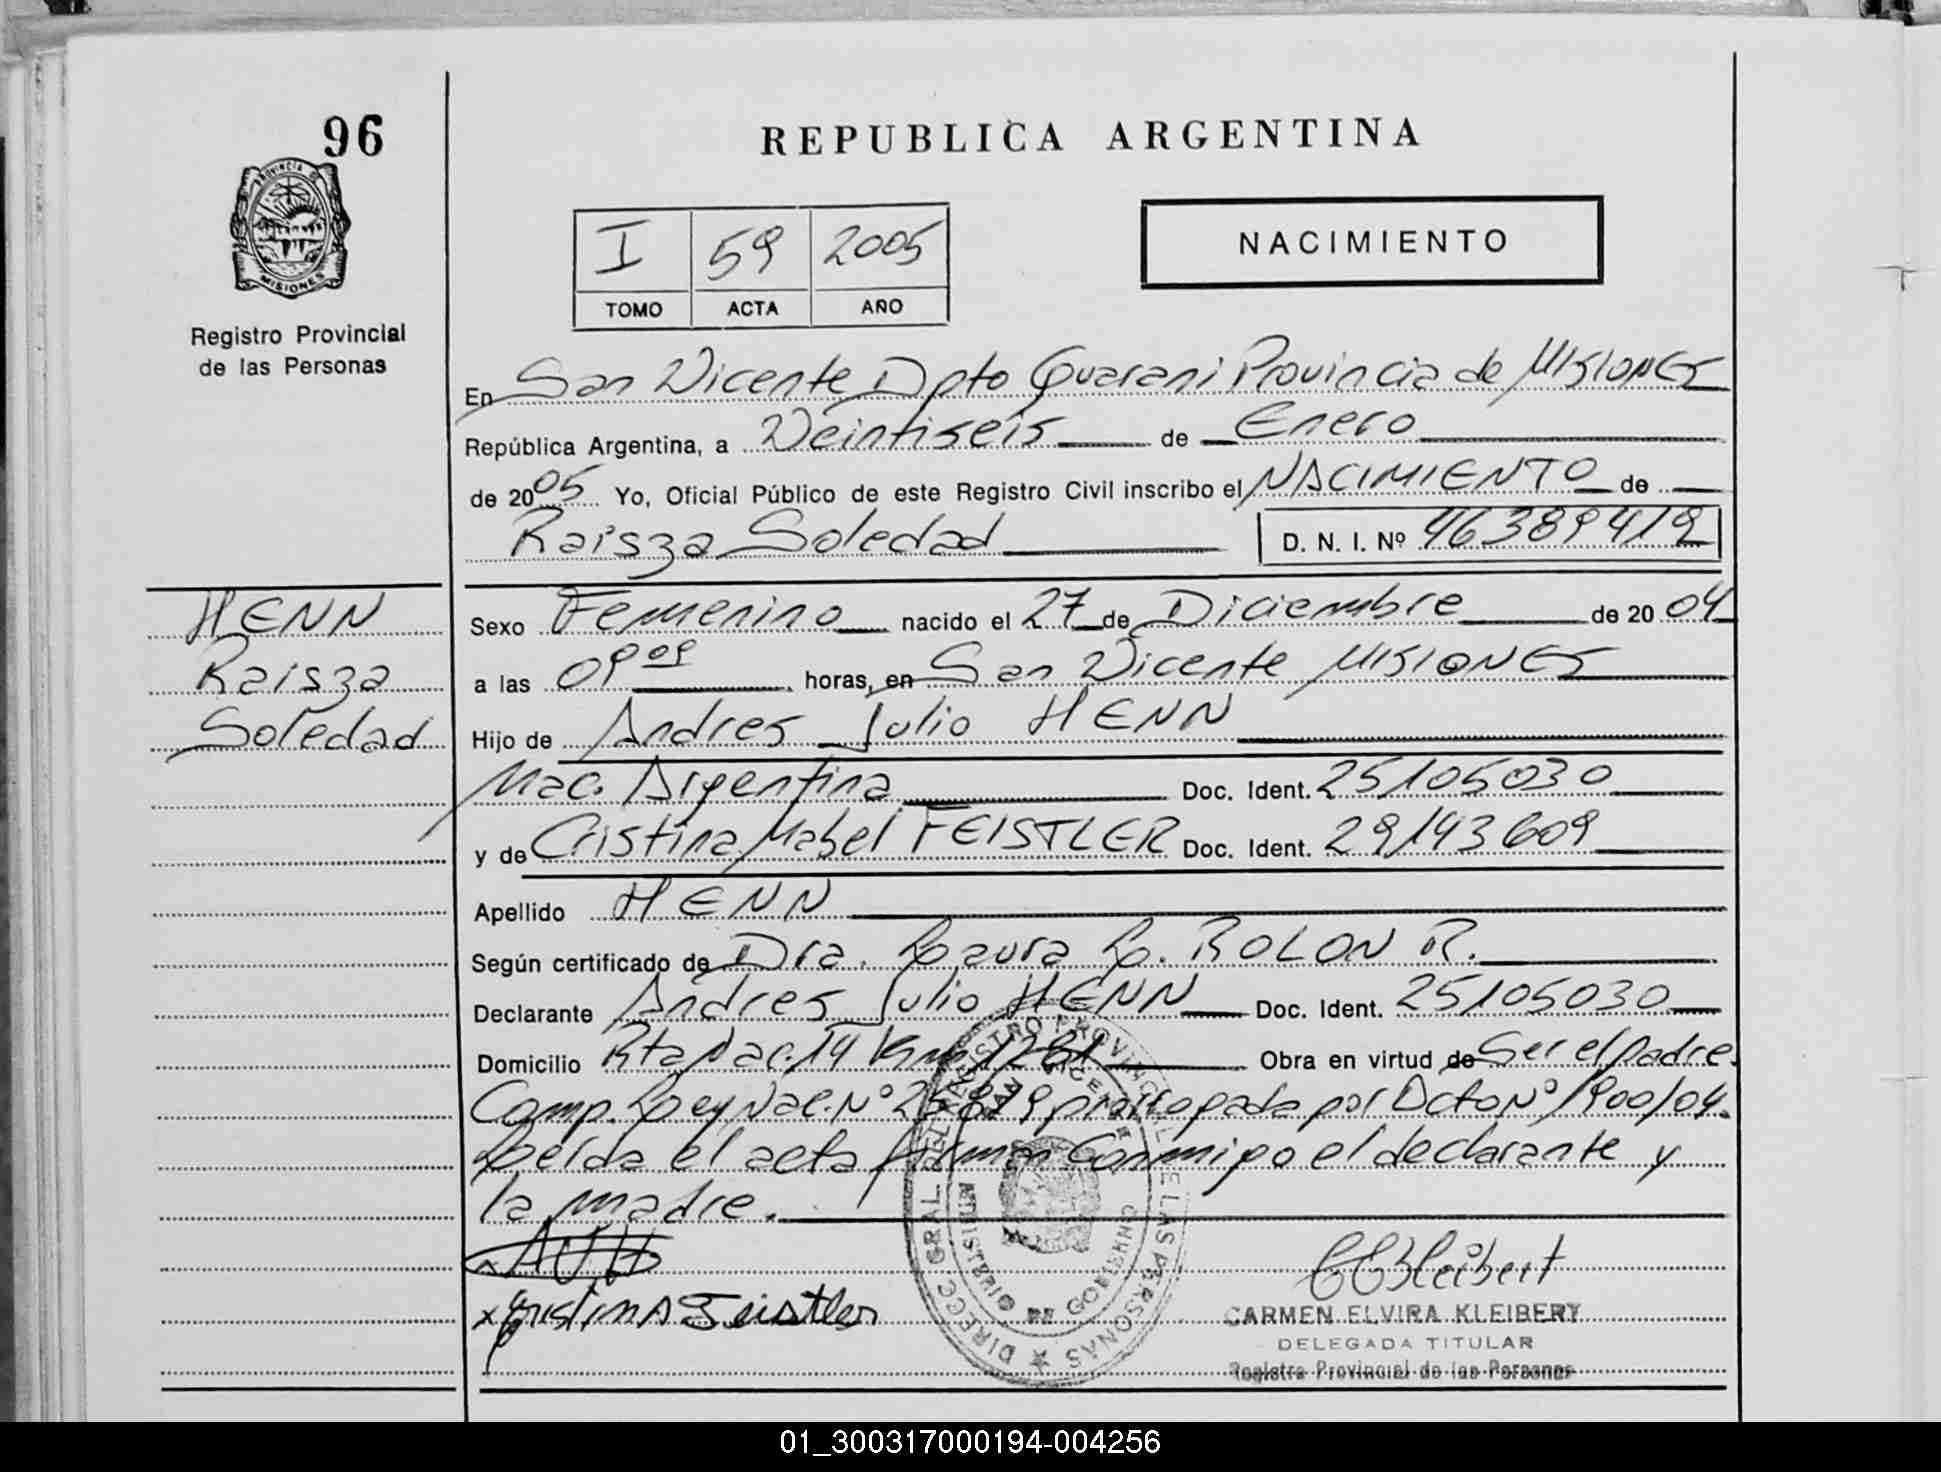 96
PROVINCIA DE
MISIONES
Registro Provincial
de las Personas
REPUBLICA ARGENTINA
I 59 2005
TOMO ACTA AÑO
NACIMIENTO
En San Vicente Dpto Guarani Provincia de MISIONES
República Argentina, a Veintiseis de Enero
de 2005 Yo, Oficial Público de este Registro Civil inscribo el NACIMIENTO de
Raisza Soledad D. N. I. Nº 46389419
HENN
Raisza
Soledad
Sexo Femenino nacido el 27 de Diciembre de 2004
a las 09 09 horas, en San Vicente MISIONES
Hijo de Andres Julio HENN
Nac. Argentina Doc. Ident. 25105030
y de Cristina Mabel FEISTLER Doc. Ident. 29193609
Apellido HENN
Según certificado de Dra. Laura L. ROLON R.
Declarante Andres Julio HENN Doc. Ident. 25105030
Domicilio Rta Nac. 14 Km 1281 Obra en virtud de Ser el padre.
Comp. Ley Nac. Nº 25819 prorrogada por Dcto Nº 1900/04.
Leida el acta firman conmigo el declarante y
la madre.
AJH
x Cristina Feistler
CCKleibert
CARMEN ELVIRA KLEIBERT
DELEGADA TITULAR
Registro Provincial de las Personas
DIRECC GRAL DEL REGISTRO PROVINCIAL DE LAS PERSONAS
MINISTERIO DE GOBIERNO
01_300317000194-004256